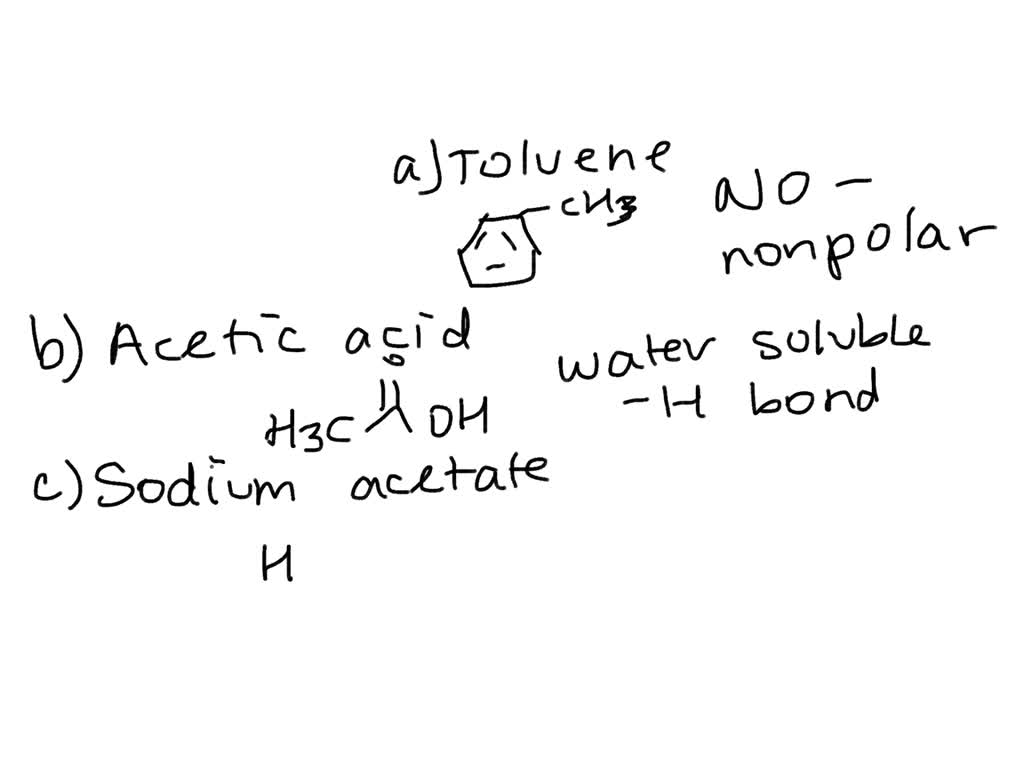 a) Toluene
CH3
NO –
nonpolar
b) Acetic acid
O
H3C OH
water soluble
– H bond
c) Sodium acetate
H